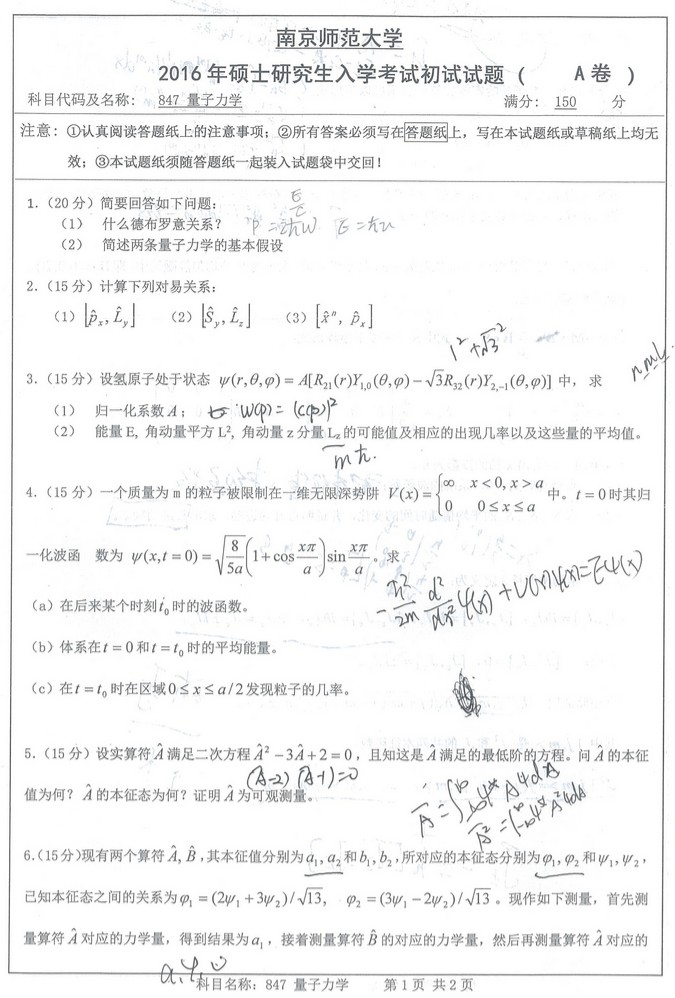 南京师范大学
2016年硕士研究生入学考试初试试题（ A卷 ）
科目代码及名称: 847 量子力学 满分: 150 分
注意: ①认真阅读答题纸上的注意事项；②所有答案必须写在答题纸上，写在本试题纸或草稿纸上均无
效；③本试题纸须随答题纸一起装入试题袋中交回！
1．（20分）简要回答如下问题:
（1） 什么德布罗意关系？ E=ħω
（2） 简述两条量子力学的基本假设
2．（15分）计算下列对易关系:
（1）[p̂x, L̂y] （2）[Ŝy, L̂z] （3）[x̂ⁿ, p̂x]
1²+√3²
nml
3．（15分）设氢原子处于状态 ψ(r,θ,φ)=A[R21(r)Y1,0(θ,φ)−√3R32(r)Y2,-1(θ,φ)] 中，求
（1） 归一化系数A；
（2） 能量E, 角动量平方L², 角动量z分量Lz的可能值及相应的出现几率以及这些量的平均值。
mħ.
4．（15分）一个质量为m的粒子被限制在一维无限深势阱 V(x)={∞ x<0, x>a; 0 0≤x≤a 中。t=0时其归
一化波函 数为 ψ(x,t=0)=√(8/5a)(1+cos xπ/a)sin xπ/a。求
-ħ²/2m d²/dx² ψ(x)+V(x)ψ(x)=Eψ(x)
（a）在后来某个时刻t0时的波函数。
（b）体系在t=0和t=t0时的平均能量。
（c）在t=t0时在区域0≤x≤a/2发现粒子的几率。
5．（15分）设实算符Â满足二次方程Â²−3Â+2=0，且知这是Â满足的最低阶的方程。问Â的本征
(A-2)(A-1)=0
值为何？Â的本征态为何？证明Â为可观测量。
6.（15分）现有两个算符Â,B̂，其本征值分别为a1,a2和b1,b2，所对应的本征态分别为φ1,φ2和ψ1,ψ2，
已知本征态之间的关系为φ1=(2ψ1+3ψ2)/√13, φ2=(3ψ1−2ψ2)/√13。现作如下测量，首先测
量算符Â对应的力学量，得到结果为a1，接着测量算符B̂的对应的力学量，然后再测量算符Â对应的
科目名称: 847 量子力学 第1页 共2页